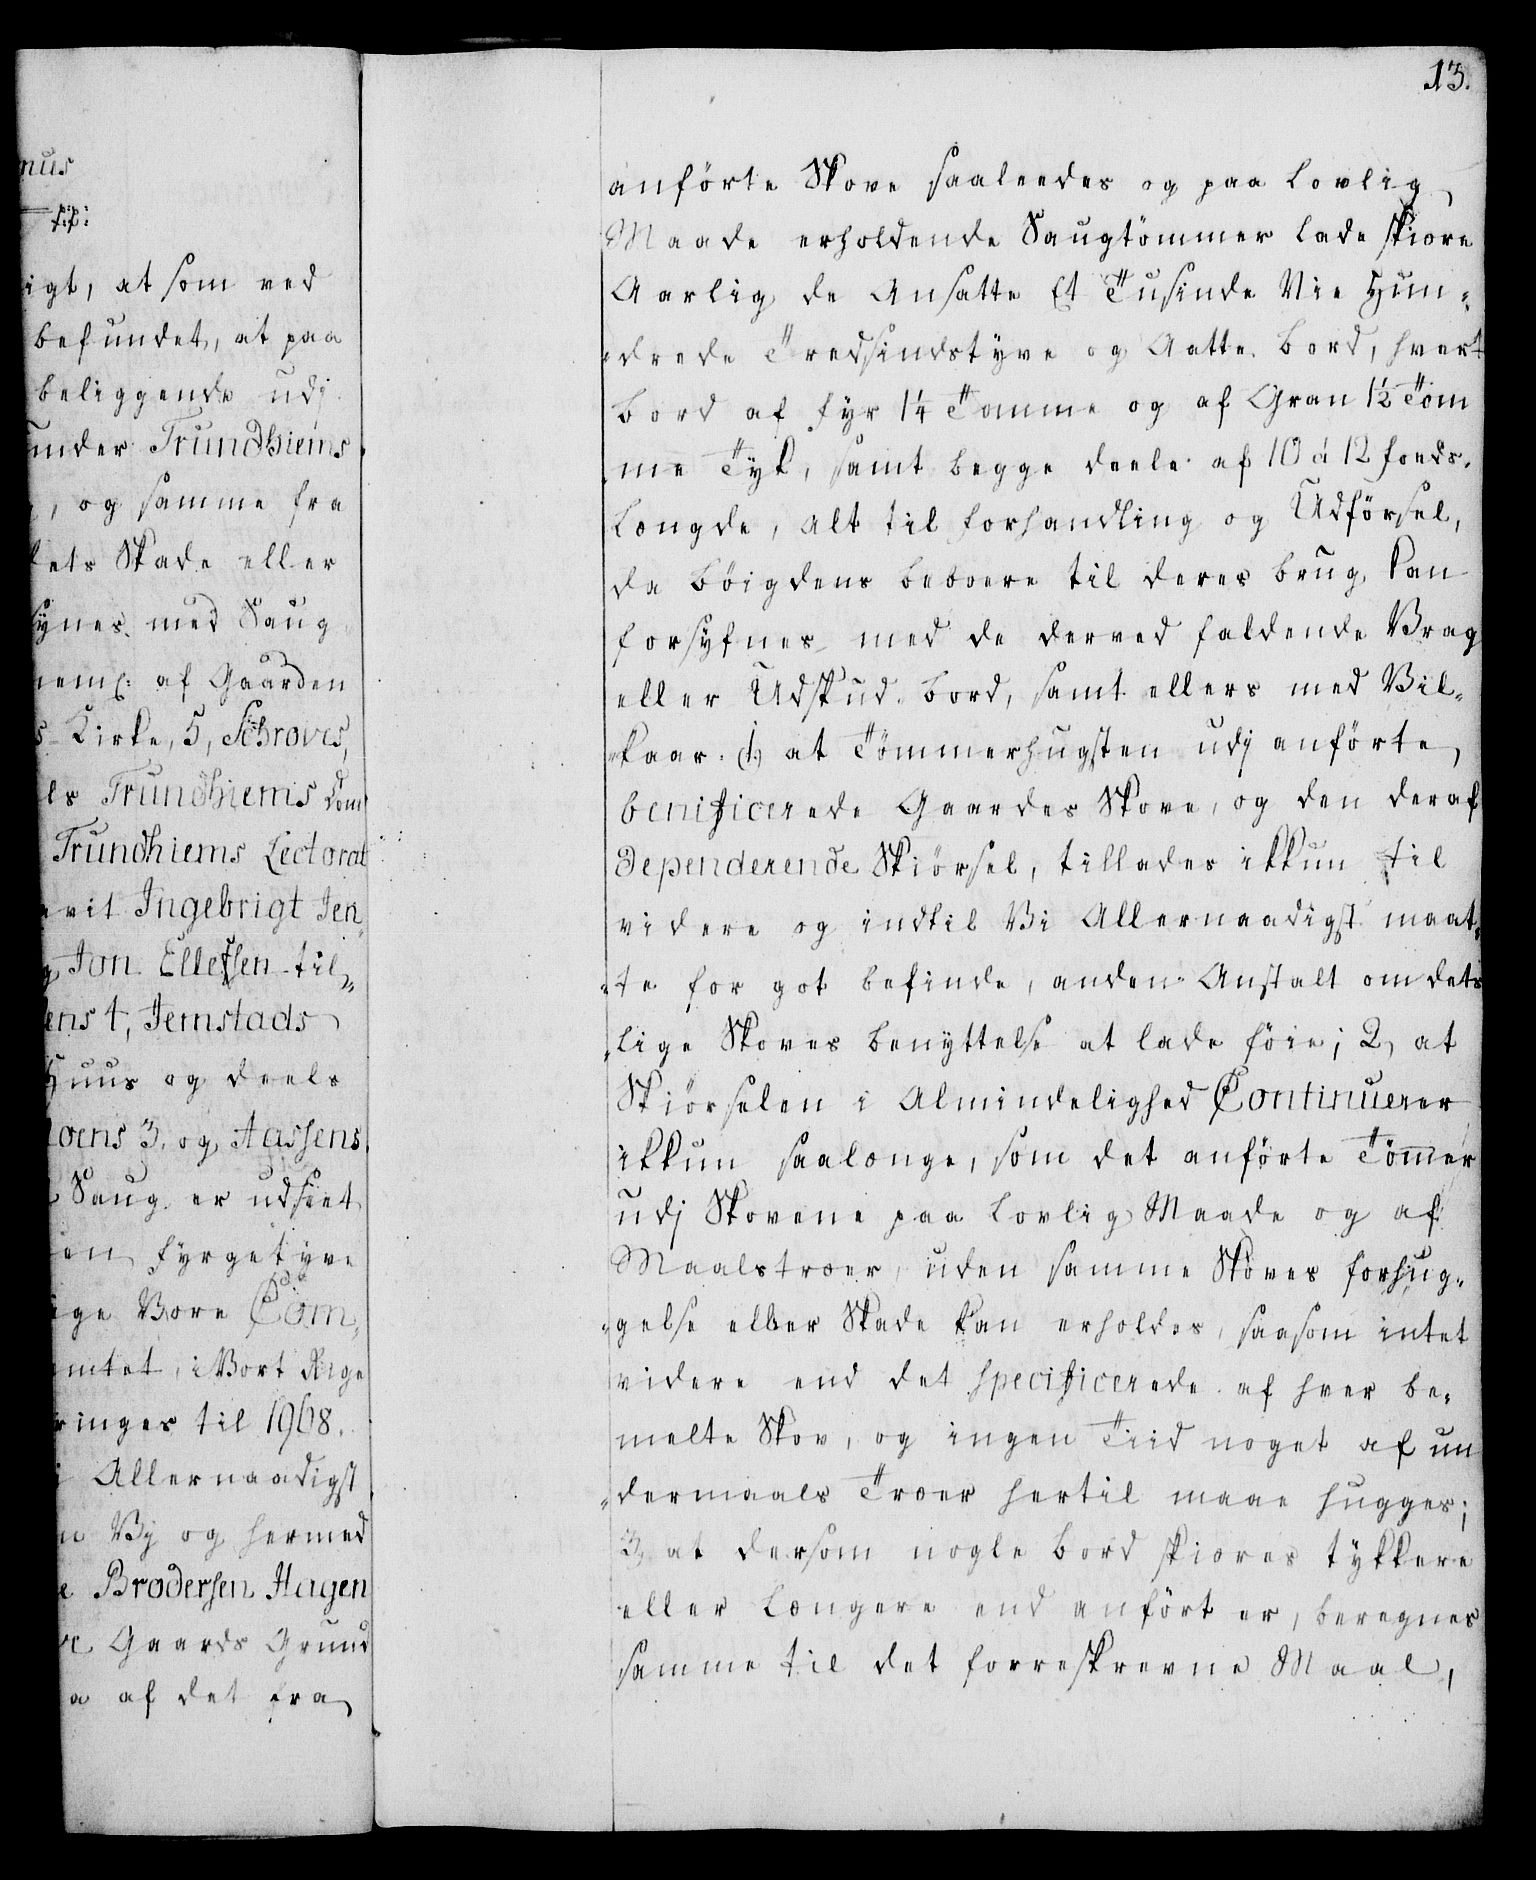 13.
mus
p:p:
igt, at som ved
befundet, at paa
beliggende udj
under Trundhiems
, og samme fra
lets Skade eller
synes med Saug
neml: af Gaarden
s Kirke, 5, Schroves,
ls Trundhiems Dom
Trundhiems Lectorat
evit Ingebrigt Jen
g Jon Ellefsen til„
ens 4, Jemstads
Huus og deels
loens 3, og Aassens
Saug er udseet
en fyrgetyve
ige Vore Com„
amtet, i Vort Rige
ringes til 1968.
i Allernaadigst
n Vy og hermed
e Brodersen Hagen
ve Gaards Grund
a af det fra
anførte Skove saaleedes og paa Lovlig
Maade erholdende Saugtömmer lade skiære
Aarlig de Ansatte Et Tusinde Nie Hun„
„drede Tredsindstyve og Aatte Bord, hvert
Bord af fyr 1¼ Tomme og af Gran 1½ Tom
me Tyk, samt begge deele af 10 á 12 foeds
Længde, alt til forhandling og Udförsel,
da Böigdens beboere til deres brug kan
forsyfnes med de derved faldende Vrag
eller Udskud Bord, samt ellers med Vil„
„kaar. 1) at Tömmerhugsten udj anførte
benificerede Gaardes Skove, og den deraf
dependerende Skiörsel, tillades ikkun til
videre og indtil Vi Allernaadigst maat„
„te for got befinde, anden Anstalt om dets
„lige Skoves benyttelse at lade föie; 2, at
Skiörselen i Almindelighed Continuerer
ikkun saalænge, som det anförte Tömer
udj Skovene paa Lovlig Maade og af
Maalstræer, uden samme Skoves forhug„
„gelse eller Skade kan erholdes, saasom intet
videre end det specificerede af hver be„
melte Skov, og ingen Tiid noget af un
„dermaals Træer hertil maae hugges;
3, at dersom nogle Bord skiæres tykkere
eller Længere end anfört er, beregnes
samme til det forreskrevne Maal,